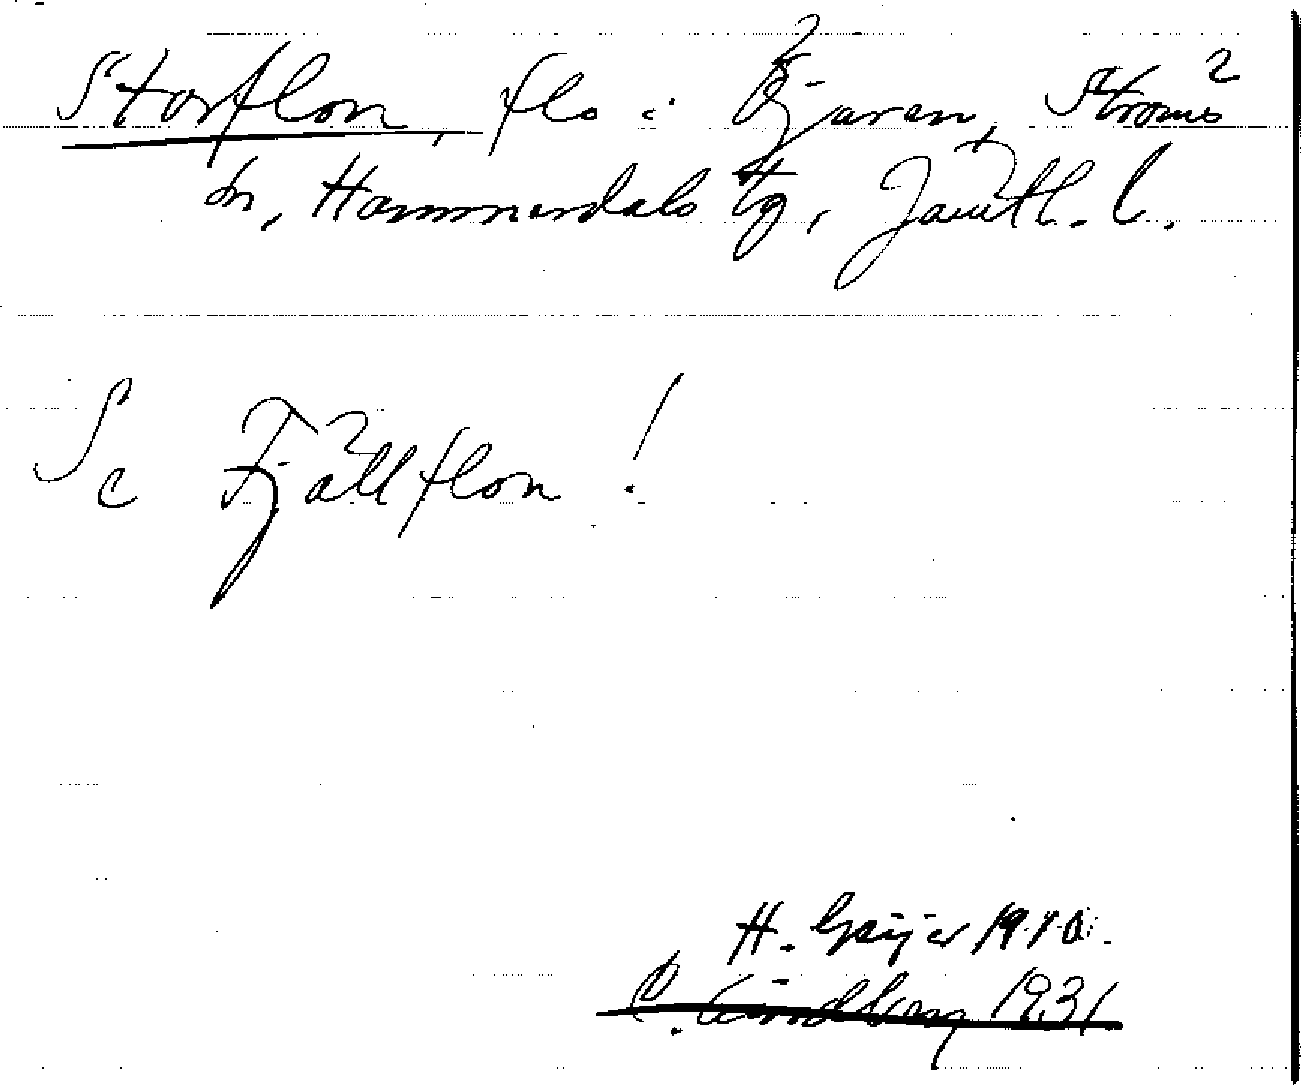 Storflon, flo i Tjaren, Ströms
sn, Hammerdals tg, Jämtl. l.
Se Fjällflon!
H. Geijer 1910.
C. Lindberg 1931